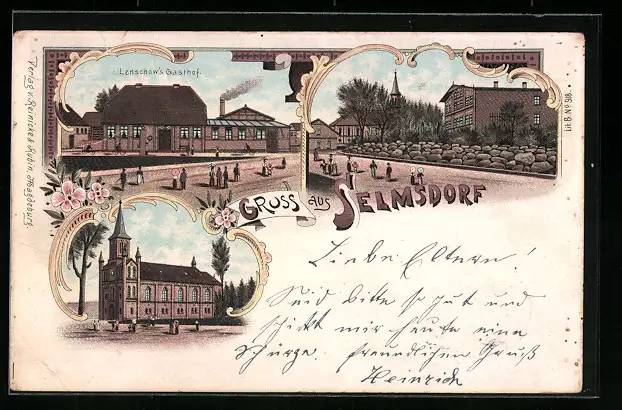 Lenschow's Gasthof.
Verlag v. Reinicke & Rubin, Magdeburg
Lit. B. No 918.
GRUSS AUS SELMSDORF
Liebe Eltern!
Seid bitte so gut und
schickt mir heute eine
Schürze. freundlichen Gruß
Heinrich